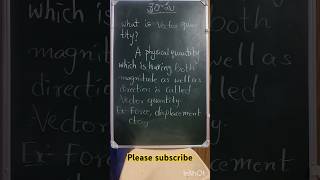 What is vector quan
tity?
A physical quantity
which is having both
magnitude as well as
direction is called
Vector quantity.
Ex- Force, displacement
Please subscribe